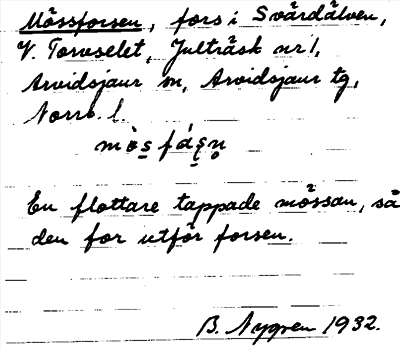 Mössforsen, fors i Svärdälven,
V. Torveselet, Julträsk nr 1,
Arvidsjaur sn, Arvidsjaur tg,
Norrb. l.
En flottare tappade mössan, så
den for utför forsen.
B. Nygren 1932.